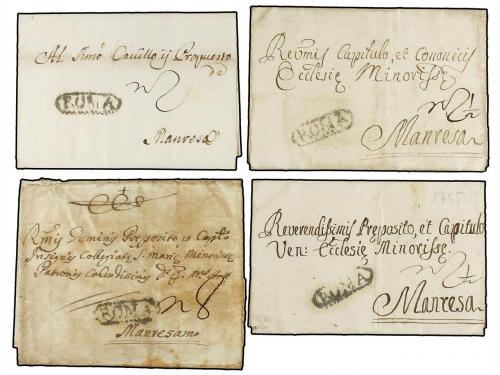 Al Iltmo Cavillo ij Proposto
de
ROMA
Manresa
Revmis Capitulo, et Canonicis
Ecclesię Minorissę
ROMA
Manresa
Rmis Dominis Preposito et Captlo
Insignis Collegiatę S. Marię Minorissę
Patronis Colendissimis
ROMA
Manresam
Reverendissimis Pręposito, et Capitulo
Ven: Ecclesię Minorissę.
ROMA
Manresa